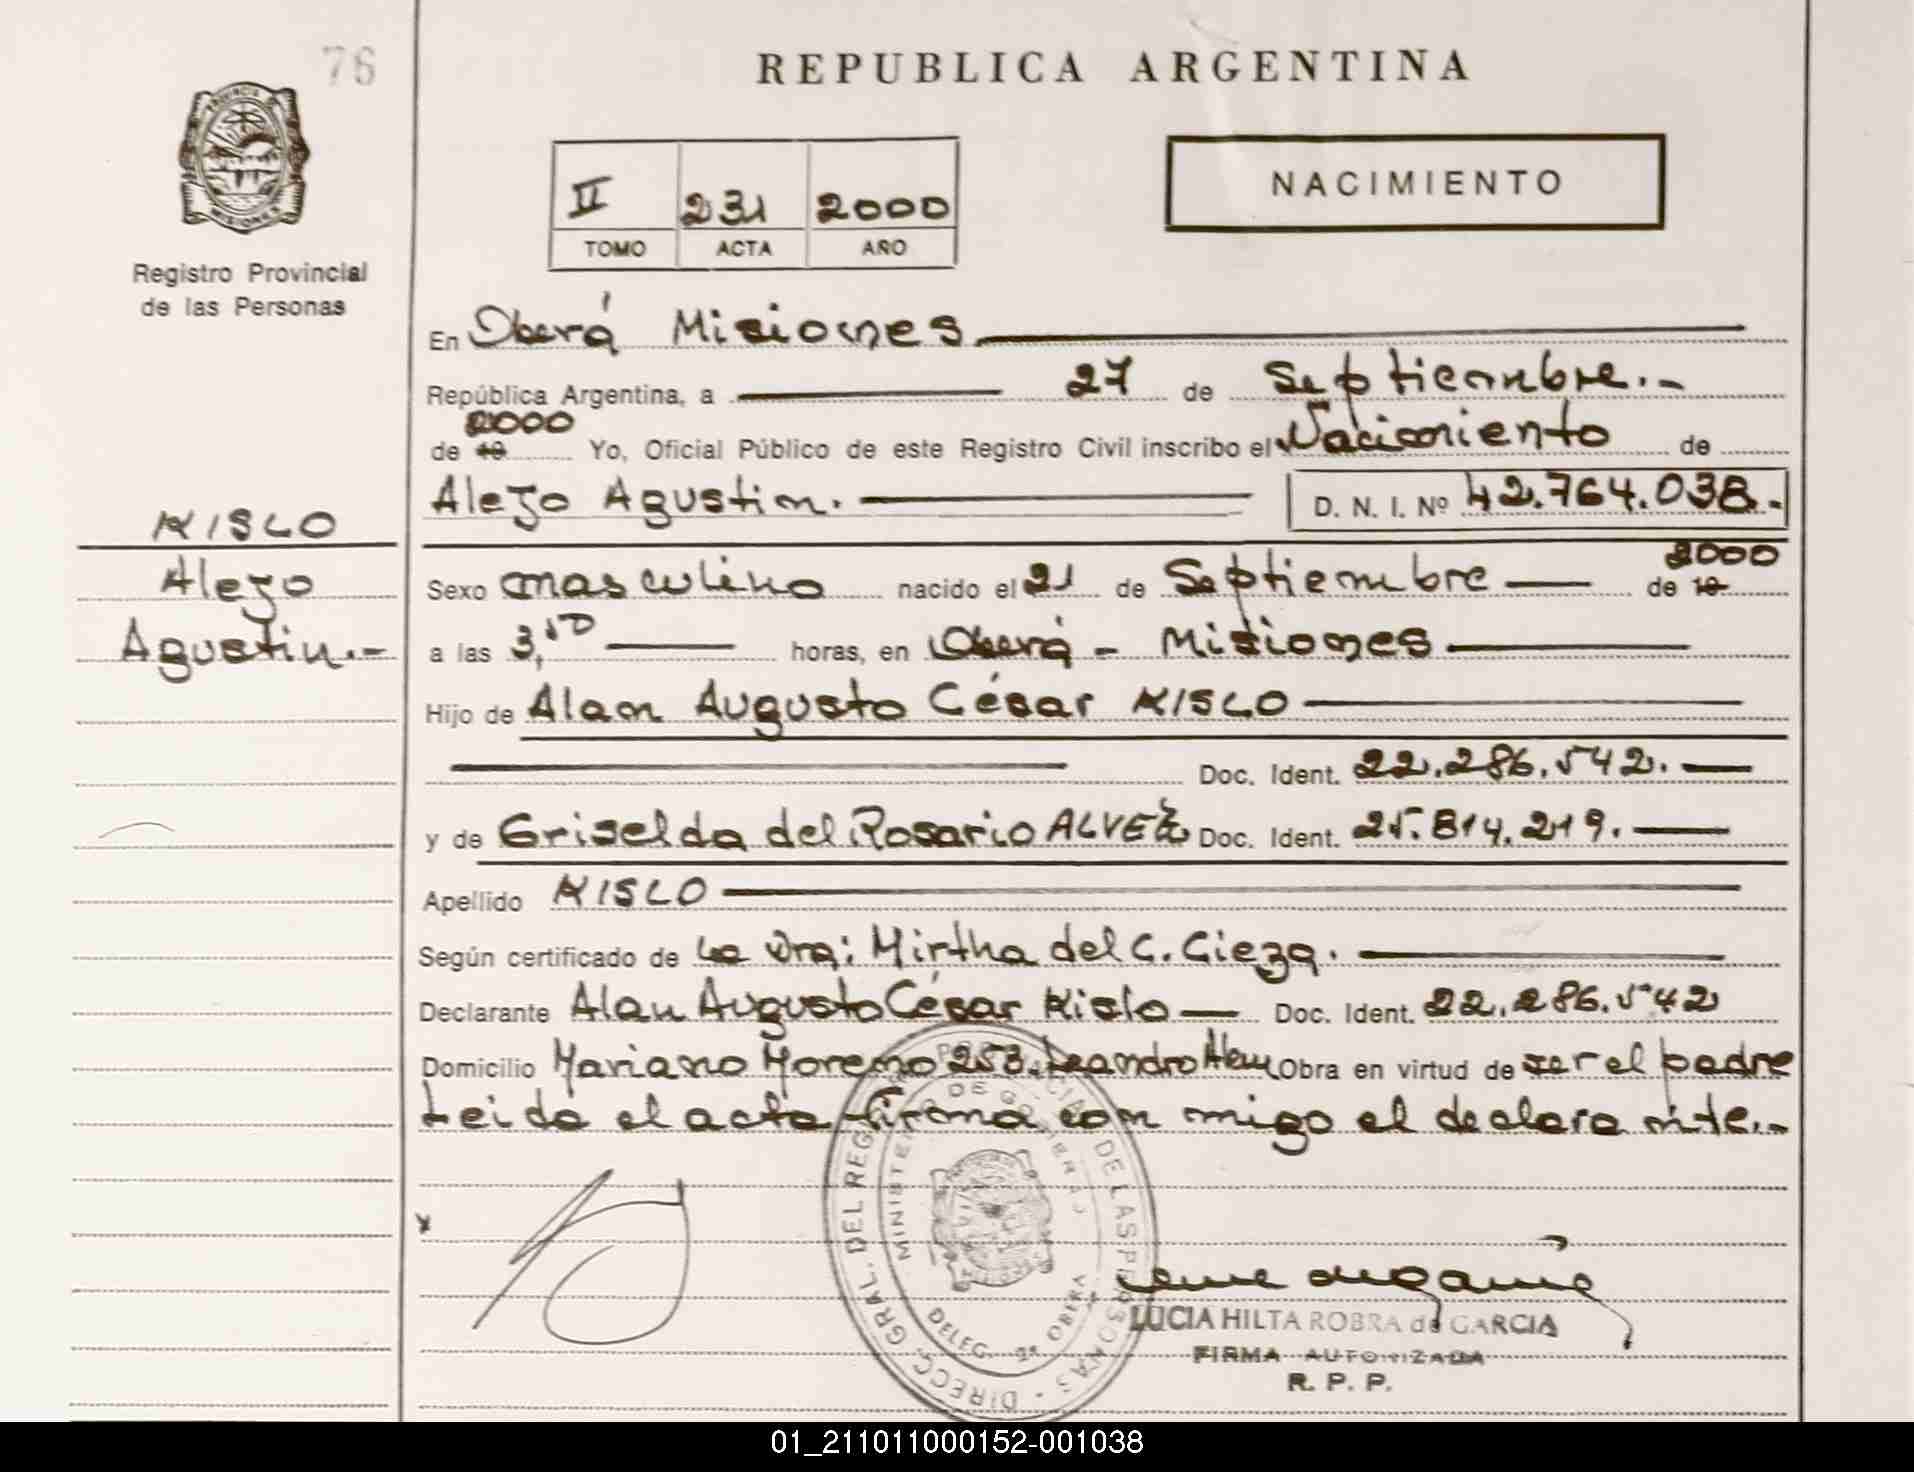 76
REPUBLICA ARGENTINA
PROVINCIA DE MISIONES
Registro Provincial
de las Personas
II 231 2000
TOMO ACTA AÑO
NACIMIENTO
En Oberá Misiones
República Argentina, a 27 de Septiembre.-
2000
de 19 Yo, Oficial Público de este Registro Civil inscribo el Nacimiento de
Alejo Agustin. D. N. I. Nº 42.764.038.-
KISLO
Alejo
Agustin.-
2000
Sexo masculino nacido el 21 de Septiembre de 19
a las 3,50 horas, en Oberá - Misiones
Hijo de Alan Augusto César KISLO
Doc. Ident. 22.286.542.
y de Griselda del Rosario ALVEZ Doc. Ident. 25.814.219.
Apellido KISLO
Según certificado de La Dra: Mirtha del C. Cieza.
Declarante Alan Augusto César Kislo Doc. Ident. 22.286.542
Domicilio Mariano Moreno 253. Leandro Alem Obra en virtud de ser el padre
Leida el acta firma con migo el declara nte.-
x
DIRECC. GRAL. DEL REG. PROVINCIAL DE LAS PERSONAS
MINISTERIO DE GOBIERNO
DELEG. 2ª OBERA
LUCIA HILTA ROBRA de GARCIA
FIRMA AUTORIZADA
R. P. P.
01_211011000152-001038